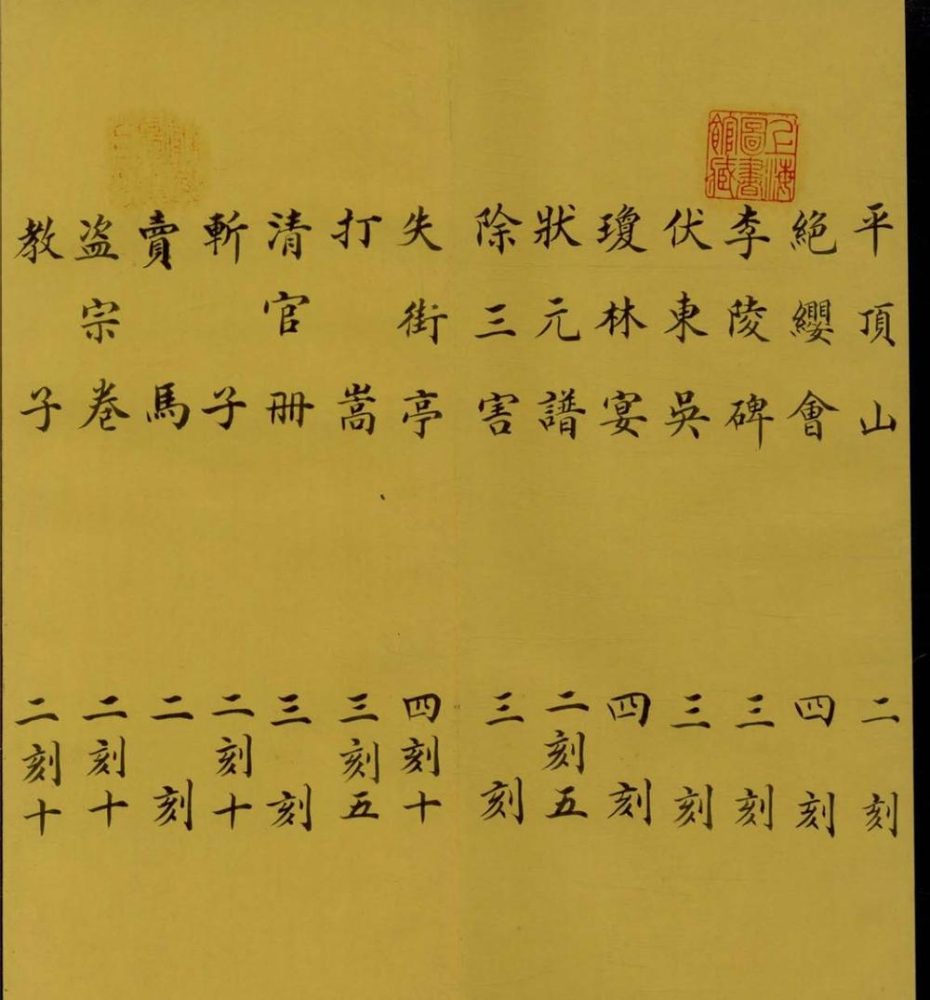 上海圖書館藏
平頂山 二刻
絕纓會 四刻
李陵碑 三刻
伏東吳 三刻
瓊林宴 四刻
狀元譜 二刻五
除三害 三刻
失街亭 四刻十
打嵩 三刻五
清官冊 三刻
斬子 二刻十
賣馬 二刻
盗宗卷 二刻十
教子 二刻十